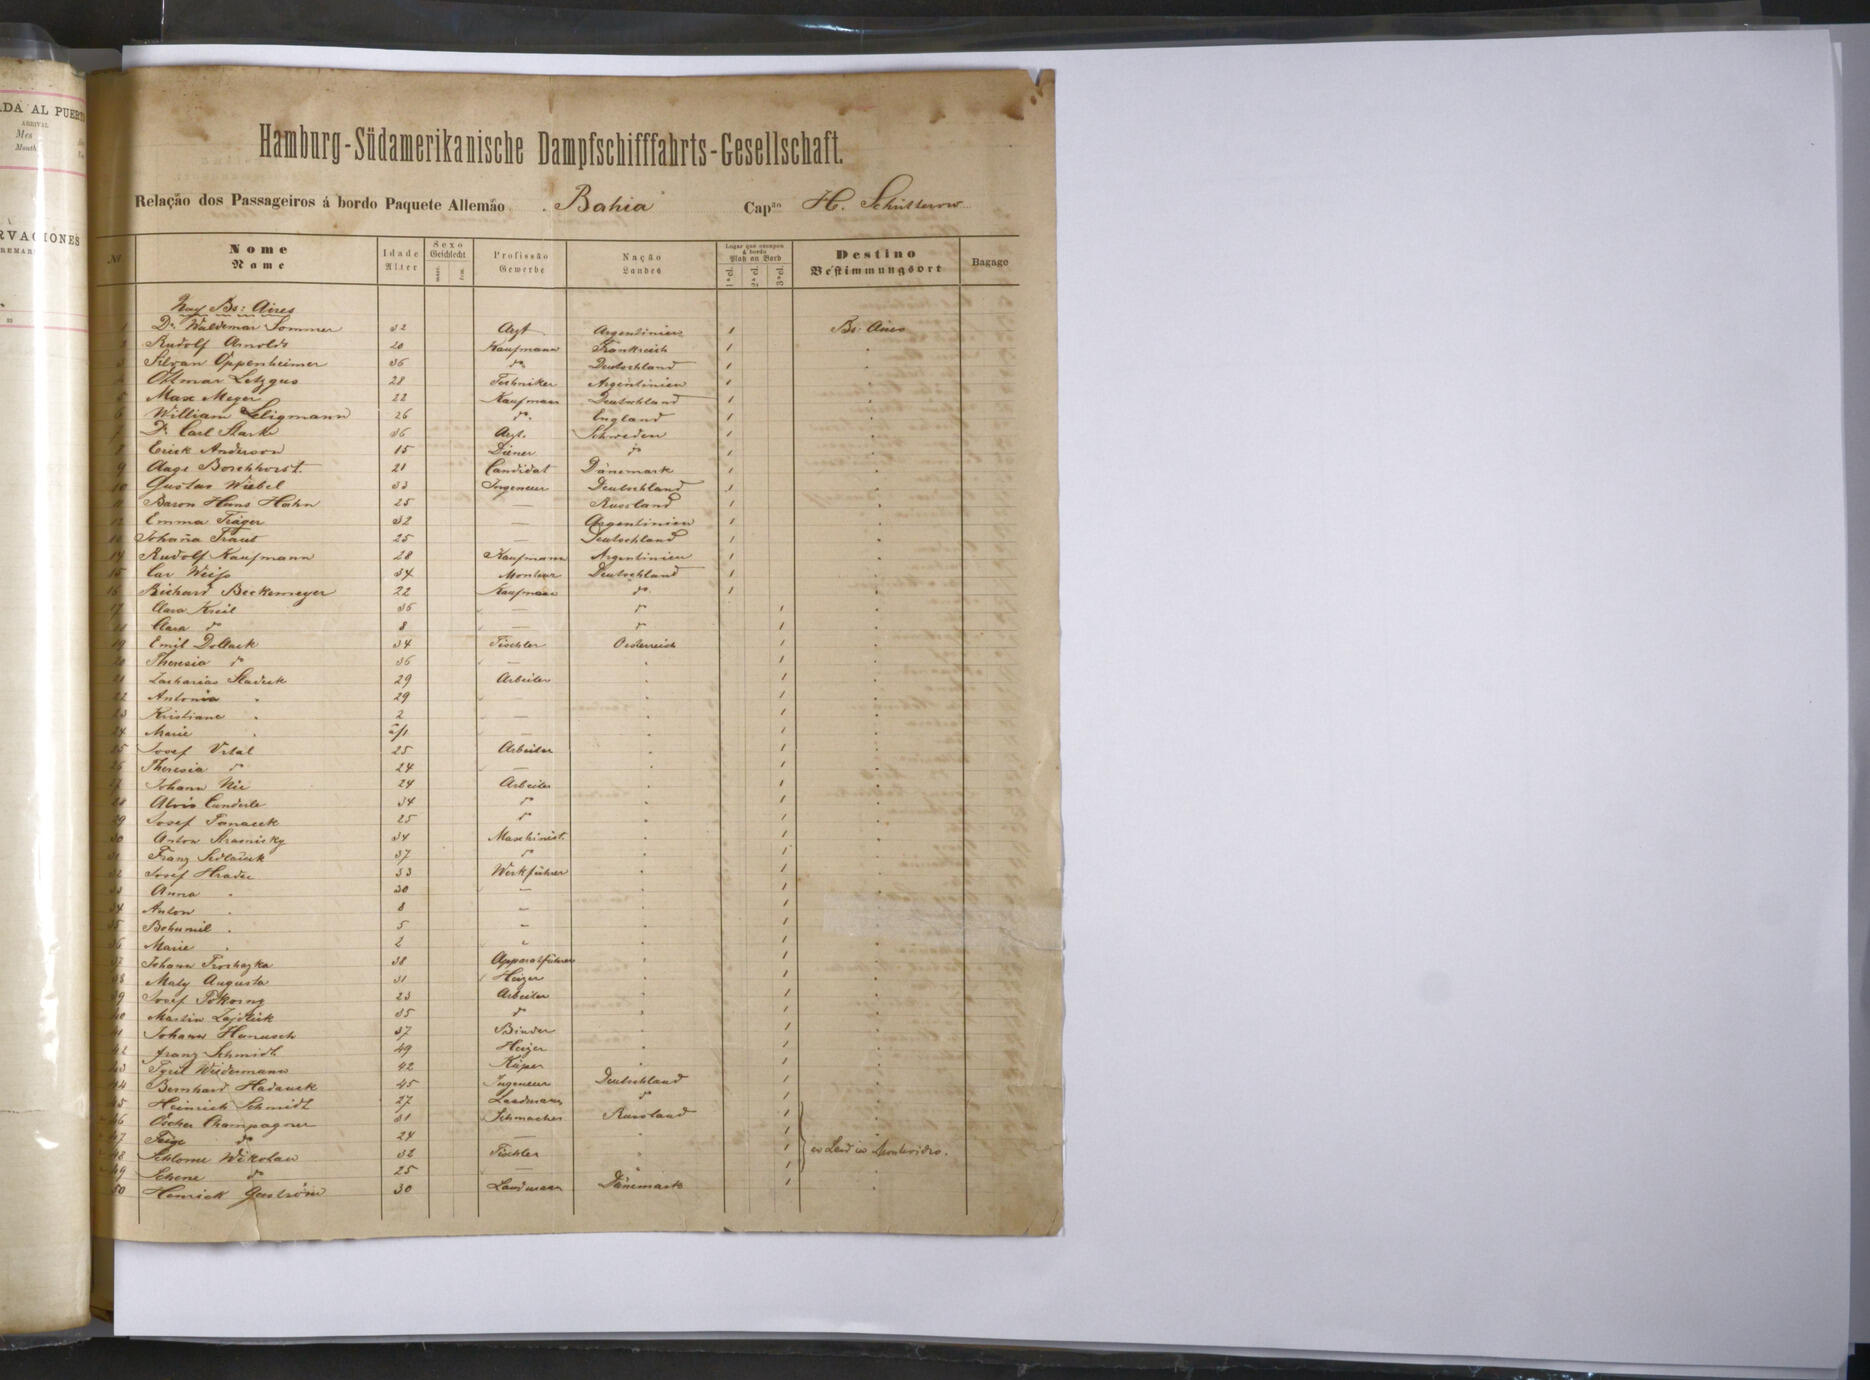 ADA AL PUERT
ARRIVAL
Mes
Month
RVACIONES
REMAR
Hamburg-Südamerikanische Dampfschifffahrts-Gesellschaft.
Relação dos Passageiros á bordo Paquete Allemão Bahia Capᵃᵒ H. Schütterow
Nº Nome Name Idade Alter Sexo Geschlecht masc. fem. Profissão Gewerbe Nação Landes Lugar que occupou á bordo Platz an Bord 1ª cl. 2ª cl. 3ª cl. Destino Bestimmungsort Bagage
Nach Bs: Aires
1 Dr. Waldemar Sommer 32 Arzt Argentinien 1 Bs: Aires
2 Rudolf Arnolds 20 Kaufmann Frankreich 1 "
3 Silvan Oppenheimer 36 do Deutschland 1 "
4 Ottmar Letzgus 28 Techniker Argentinien 1 "
5 Max Meyer 22 Kaufmann Deutschland 1 "
6 William Seligmann 26 do England 1 "
7 Dr. Carl Starke 36 Arzt. Schweden 1 "
8 Erick Anderson 15 Diener do 1 "
9 Aage Borchhorst 21 Candidat Dänemark 1 "
10 Gustav Wiebel 33 Ingeneur Deutschland 1 "
11 Baron Hans Hahn 25 — Russland 1 "
12 Emma Träger 32 — Argentinien 1 "
13 Johaña Traut 25 — Deutschland 1 "
14 Rudolf Kaufmann 28 Kaufmann Argentinien 1 "
15 Car Weiß 34 Monteur Deutschland 1 "
16 Richard Beckemeyer 22 Kaufmann do 1 "
17 Clara Kreil 36 — do 1 "
18 Clara do 8 — do 1 "
19 Emil Dollack 34 Tischler Oesterreich 1 "
20 Theresia do 36 — " 1 "
21 Zacharias Sladeck 29 Arbeiter " 1 "
22 Antonia " 29 — " 1 "
23 Kristiane " 2 — " 1 "
24 Marie " — " 1 "
25 Josef Vital 25 Arbeiter " 1 "
26 Theresia do 24 — " 1 "
27 Johann Nie 24 Arbeiter " 1 "
28 Alois Cunderle 34 do " 1 "
29 Josef Panacek 25 do " 1 "
30 Anton Strasnicky 34 Maschinist. " 1 "
31 Franz Sedlacek 37 do " 1 "
32 Josef Hradec 33 Werkführer " 1 "
33 Anna " 30 — " 1 "
34 Anton " 8 — " 1 "
35 Bohumil " 5 — " 1 "
36 Marie " 2 — " 1 "
37 Johann Prochazka 38 Apparatführer " 1 "
38 Maly Augusta 31 Heizer " 1 "
39 Josef Pokorny 23 Arbeiter " 1 "
40 Martin Zajdlik 35 do " 1 "
41 Johann Hanusch 37 Binder " 1 "
42 Franz Schmidt 49 Heizer " 1 "
43 Wiedermann 42 Küper " 1 "
44 Bernhard Hadaueck 45 Ingeneur Deutschland 1 "
45 Heinrich Schmidt 27 Landmann do 1 "
46 Oscher Champagner 31 Schmacher Russland 1 "
47 Feige do 24 — " 1 "
48 Schlome Wikolan 32 Tischler " 1 Montevideo.
49 Schene do 25 — " 1 "
50 Henrick 30 Landmann Dänemark 1 "